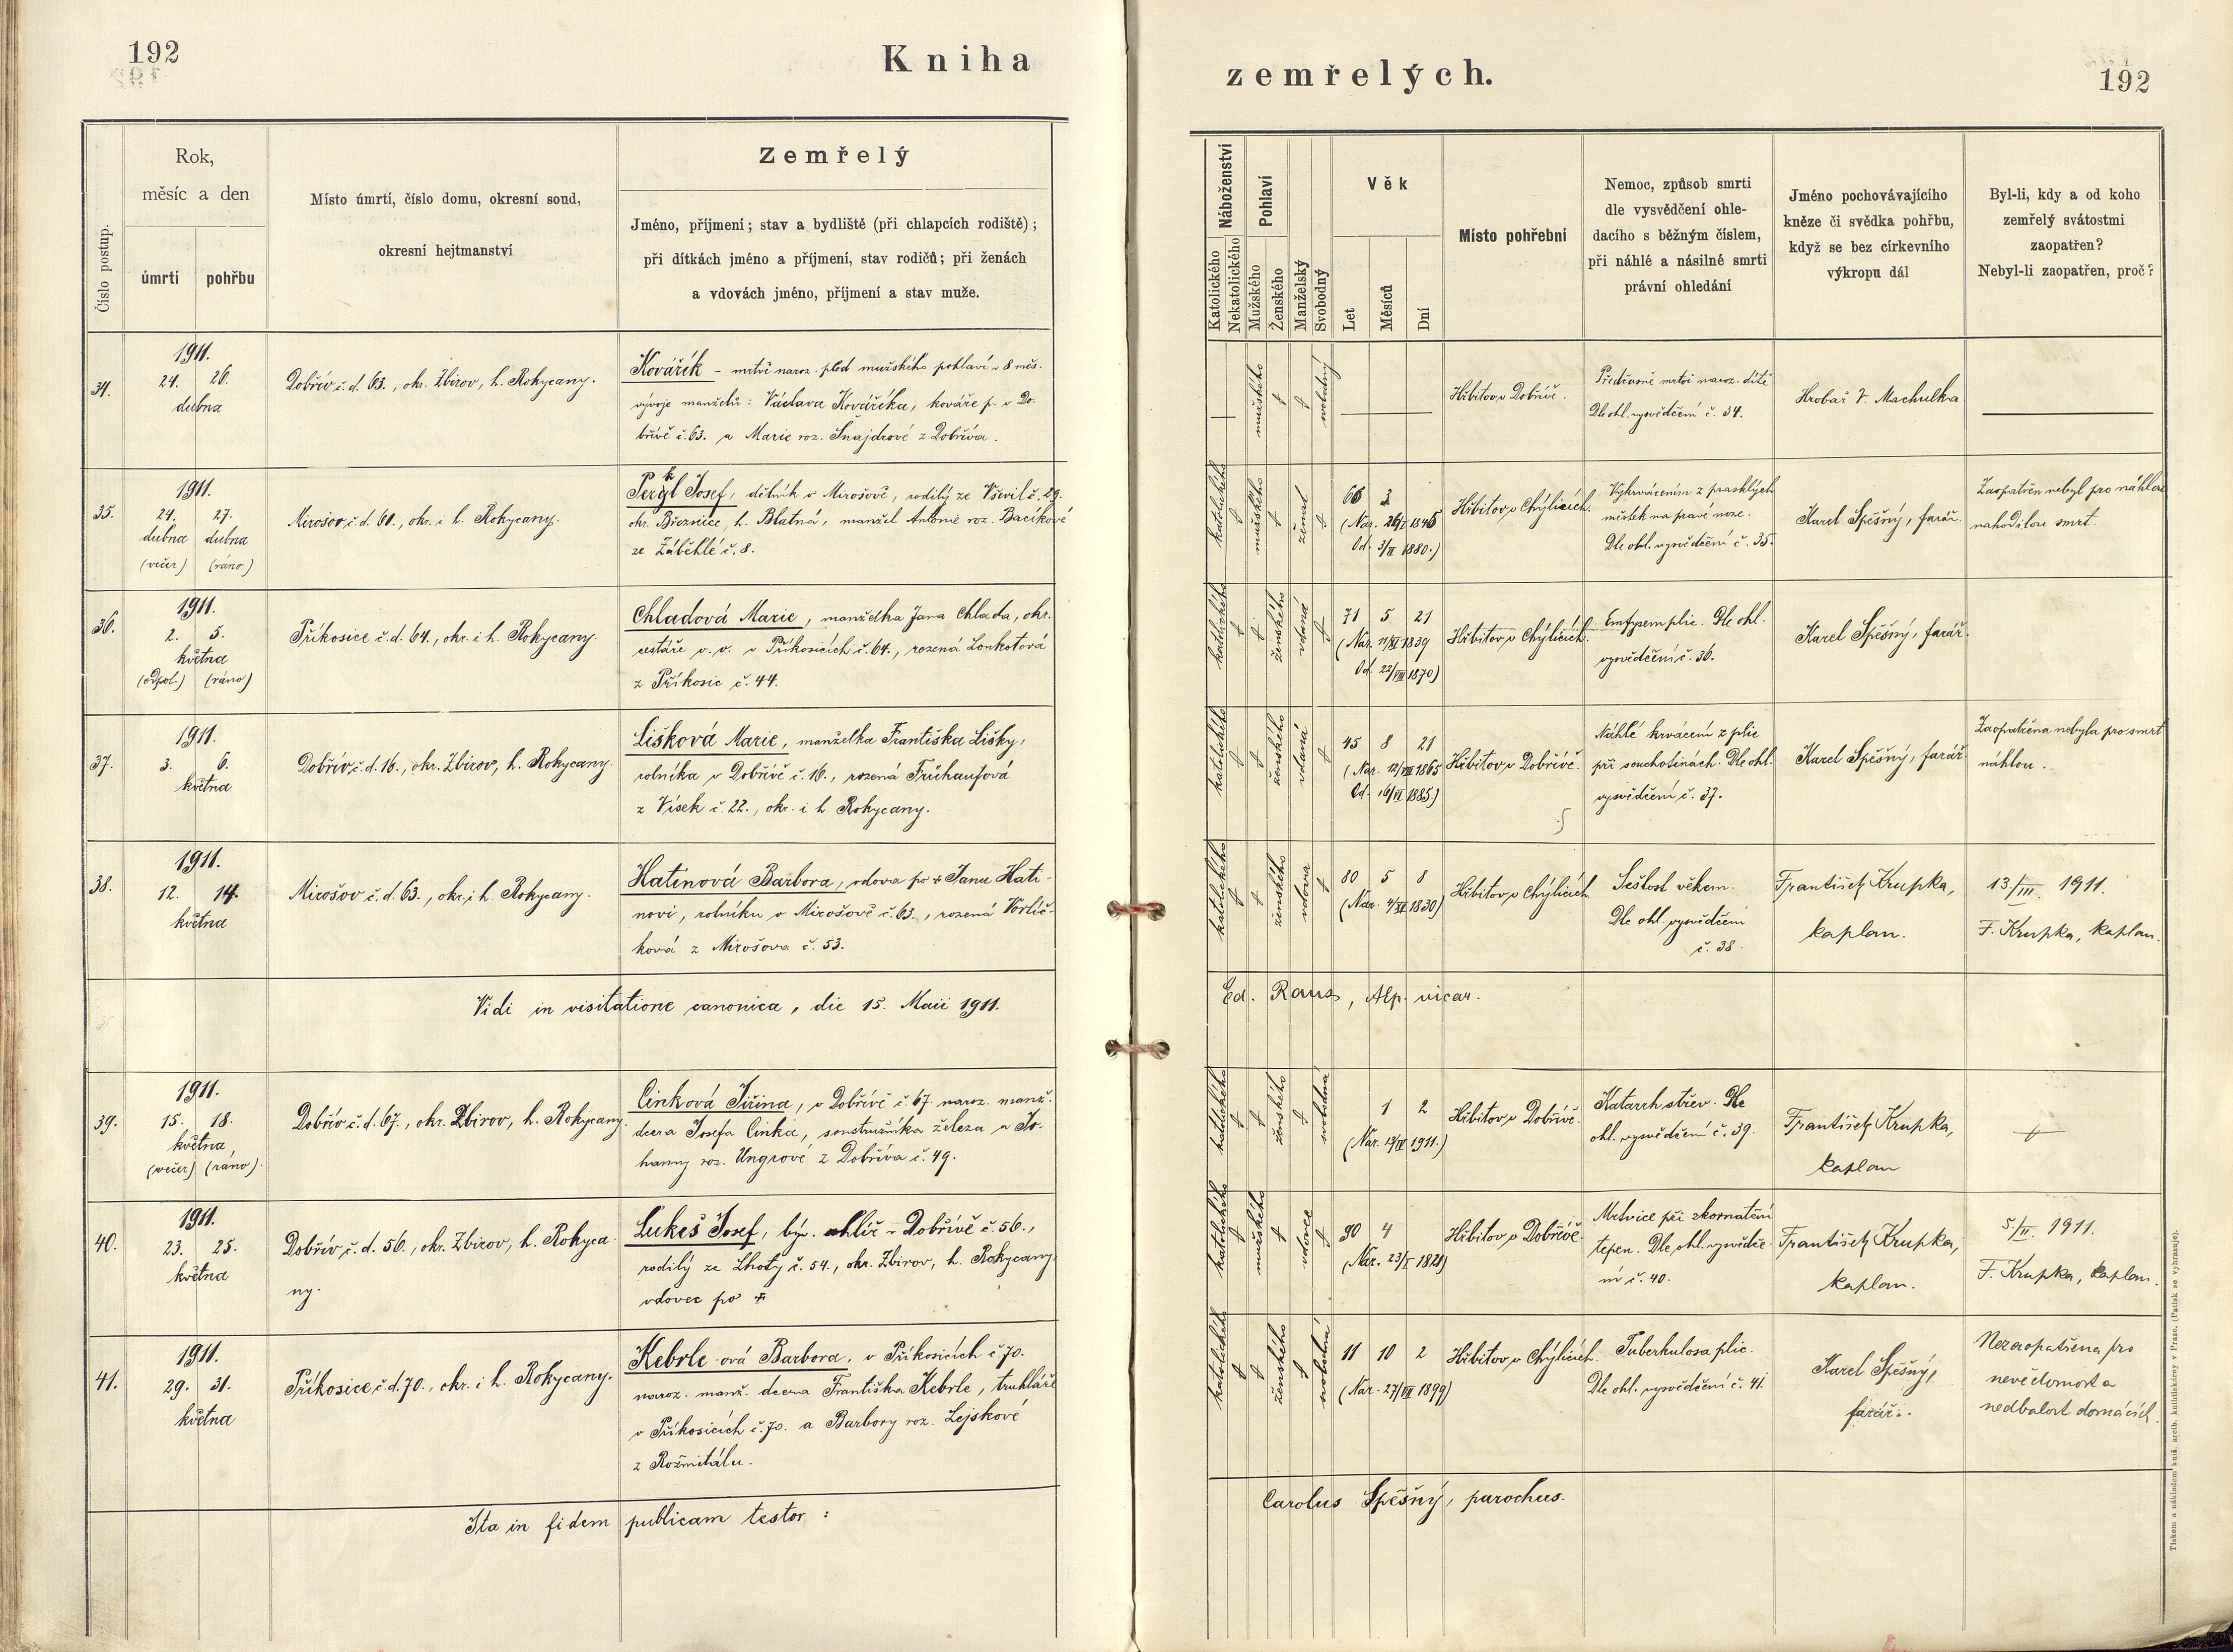 192
Kniha
Číslo postup.
Rok,
měsíc a den
úmrtí
pohřbu
Místo úmrtí, číslo domu, okresní soud,
okresní hejtmanství
Zemřelý
Jméno, příjmení; stav a bydliště (při chlapcích rodiště);
při dítkách jméno a příjmení, stav rodičů; při ženách
a vdovách jméno, příjmení a stav muže.
34.
1911.
24. 26.
dubna
Dobřív č. d. 63., okr. Zbirov, h. Rokycany.
Kovářík – mrtvě naroz. plod mužského pohlaví v 8 měs.
vývoje manželů: Václava Kováříka, kováře p. v Do-
břívě č. 63. a Marie roz. Šnajdrové z Dobříva.
35.
1911.
24. 27.
dubna dubna
(večer) (ráno)
Mirošov č. d. 60., okr. i h. Rokycany.
Josef, dělník v Mirošově, rodilý ze Vševil č. 29.
okr. Březnice, h. Blatná, manžel Antonie roz. Bacíkové
ze Záběhlé č. 8.
36.
1911.
2. 5.
května
(odpol.) (ráno)
Příkosice č. d. 64., okr. i h. Rokycany.
Chladová Marie, manželka Jana Chlada, okr.
cestáře v. v. v Příkosicích č. 64., rozená Lonkotová
z Příkosic č. 44.
37.
1911.
3. 6.
května
Dobřív, č. d. 16., okr. Zbirov, h. Rokycany.
Lišková Marie, manželka Františka Lišky,
rolníka v Dobřívě č. 16., rozená Frühaufová
z Vísek č. 22., okr. i h Rokycany.
38.
1911.
12. 14.
května
Mirošov č. d. 63., okr. i h. Rokycany.
Hatinová Barbora, vdova po † Janu Hati-
novi, rolníku v Mirošově č. 63., rozená Vorlíč-
ková z Mirošova č. 53.
Vidi in visitatione canonica, die 15. Maii 1911.
39.
1911.
15. 18.
května,
(večer) (ráno).
Dobřív č. d. 67., okr. Zbirov, h. Rokycany.
Cinková Jiřina, v Dobřívě č. 67. naroz. manž.
dcera Josefa Cinka, soustružníka železa a Jo-
hanny roz. Ungrové z Dobříva č. 49.
40.
1911.
23. 25.
května
Dobřív, č. d. 56., okr. Zbirov, h. Rokyca-
ny.
Lukeš Josef, býv. uhlíř v Dobřívě č. 56.,
rodilý ze Lhoty č. 54., okr. Zbirov, h. Rokycany,
vdovec po †
41.
1911.
29. 31.
května
Příkosice, č. d. 70., okr. i h. Rokycany.
Kebrle-ová Barbora, v Příkosicích č. 70.
naroz. manž. dcera Františka Kebrle, truhláře
v Příkosicích č. 70. a Barbory roz. Lejskové
z Rožmitálu.
Ita in fidem publicam testor:
zemřelých.
192
Náboženství
Katolického
Nekatolického
Pohlaví
Mužského
Ženského
Manželský
Svobodný
Věk
Let
Měsíců
Dní
Místo pohřební
Nemoc, způsob smrti
dle vysvědčení ohle-
dacího s běžným číslem,
při náhlé a násilné smrti
právní ohledání
Jméno pochovávajícího
kněze či svědka pohřbu,
když se bez církevního
výkropu dál
Byl-li, kdy a od koho
zemřelý svátostmi
zaopatřen?
Nebyl-li zaopatřen, proč?
mužského
svobodný
Hřbitov v Dobřívě.
Předčasně mrtvě naroz. dítě
Dle ohl. vysvědčení č. 34.
Hrobař V. Machulka
katolického
mužského
ženat
Hřbitov v Chýlicích.
Vykrvácením z prasklých
městek na pravé noze.
Dle ohl. vysvědčení č. 35.
Karel Spěšný, farář.
Zaopatřen nebyl pro náhlou
nahodilou smrt.
katolického
ženského
vdaná
71 5 21
(Nar. 11/XI 1839
Od. 22/VIII 1870)
Hřbitov v Chýlicích.
Emfysem plic. Dle ohl.
vysvědčení č. 36.
Karel Spěšný, farář.
katolického
ženského
vdaná
45 8 21
(Nar. 12/VIII 1865
Od. 16/VI 1885)
Hřbitov v Dobřívě.
Náhlé krvácení z plic
při souchotinách. Dle ohl.
vysvědčení č. 37.
Karel Spěšný, farář
Zaopatřena nebyla pro smrt
náhlou.
katolického
ženského
vdova
80 5 8
(Nar. 4/XII 1830)
Hřbitov v Chýlicích
Sešlost věkem.
Dle ohl. vysvědčení
č. 38.
František Krupka,
kaplan.
13./III. 1911.
F. Krupka, kaplan.
Ed. Raus, vicar.
katolického
ženského
svobodná
1 2
(Nar. 13/IV 1911.)
Hřbitov v Dobřívě.
Katarrh střev. Dle
ohl. vysvědčení č. 39.
František Krupka,
kaplan
katolického
mužského
vdovec
90 4
(Nar. 23/I 1821)
Hřbitov v Dobřívě.
Mrtvice při zkornatění
tepen. Dle ohl. vysvědče-
ní č. 40.
František Krupka,
kaplan.
5./II. 1911.
F. Krupka, kaplan.
katolického
ženského
svobodná
11 10 2
(Nar. 27/VII 1899)
Hřbitov v Chýlicích.
Tuberkulosa plic.
Dle ohl. vysvědčení č. 41.
Karel Spěšný,
farář.
Nezaopatřena pro
nevědomost a
nedbalost domácích.
Carolus Spěšný, parochus.